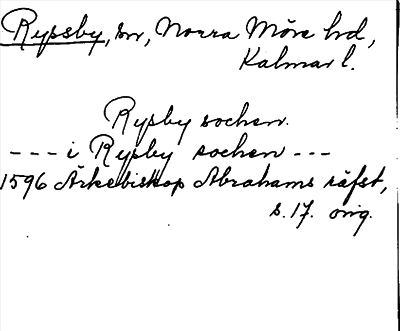 Ryssby, sn, Norra Möre hd,
Kalmar l.
Rysby sochen.
--- i Rysby sochen ---
1596 Ärkebiskop Abrahams räfst,
s. 17. orig.